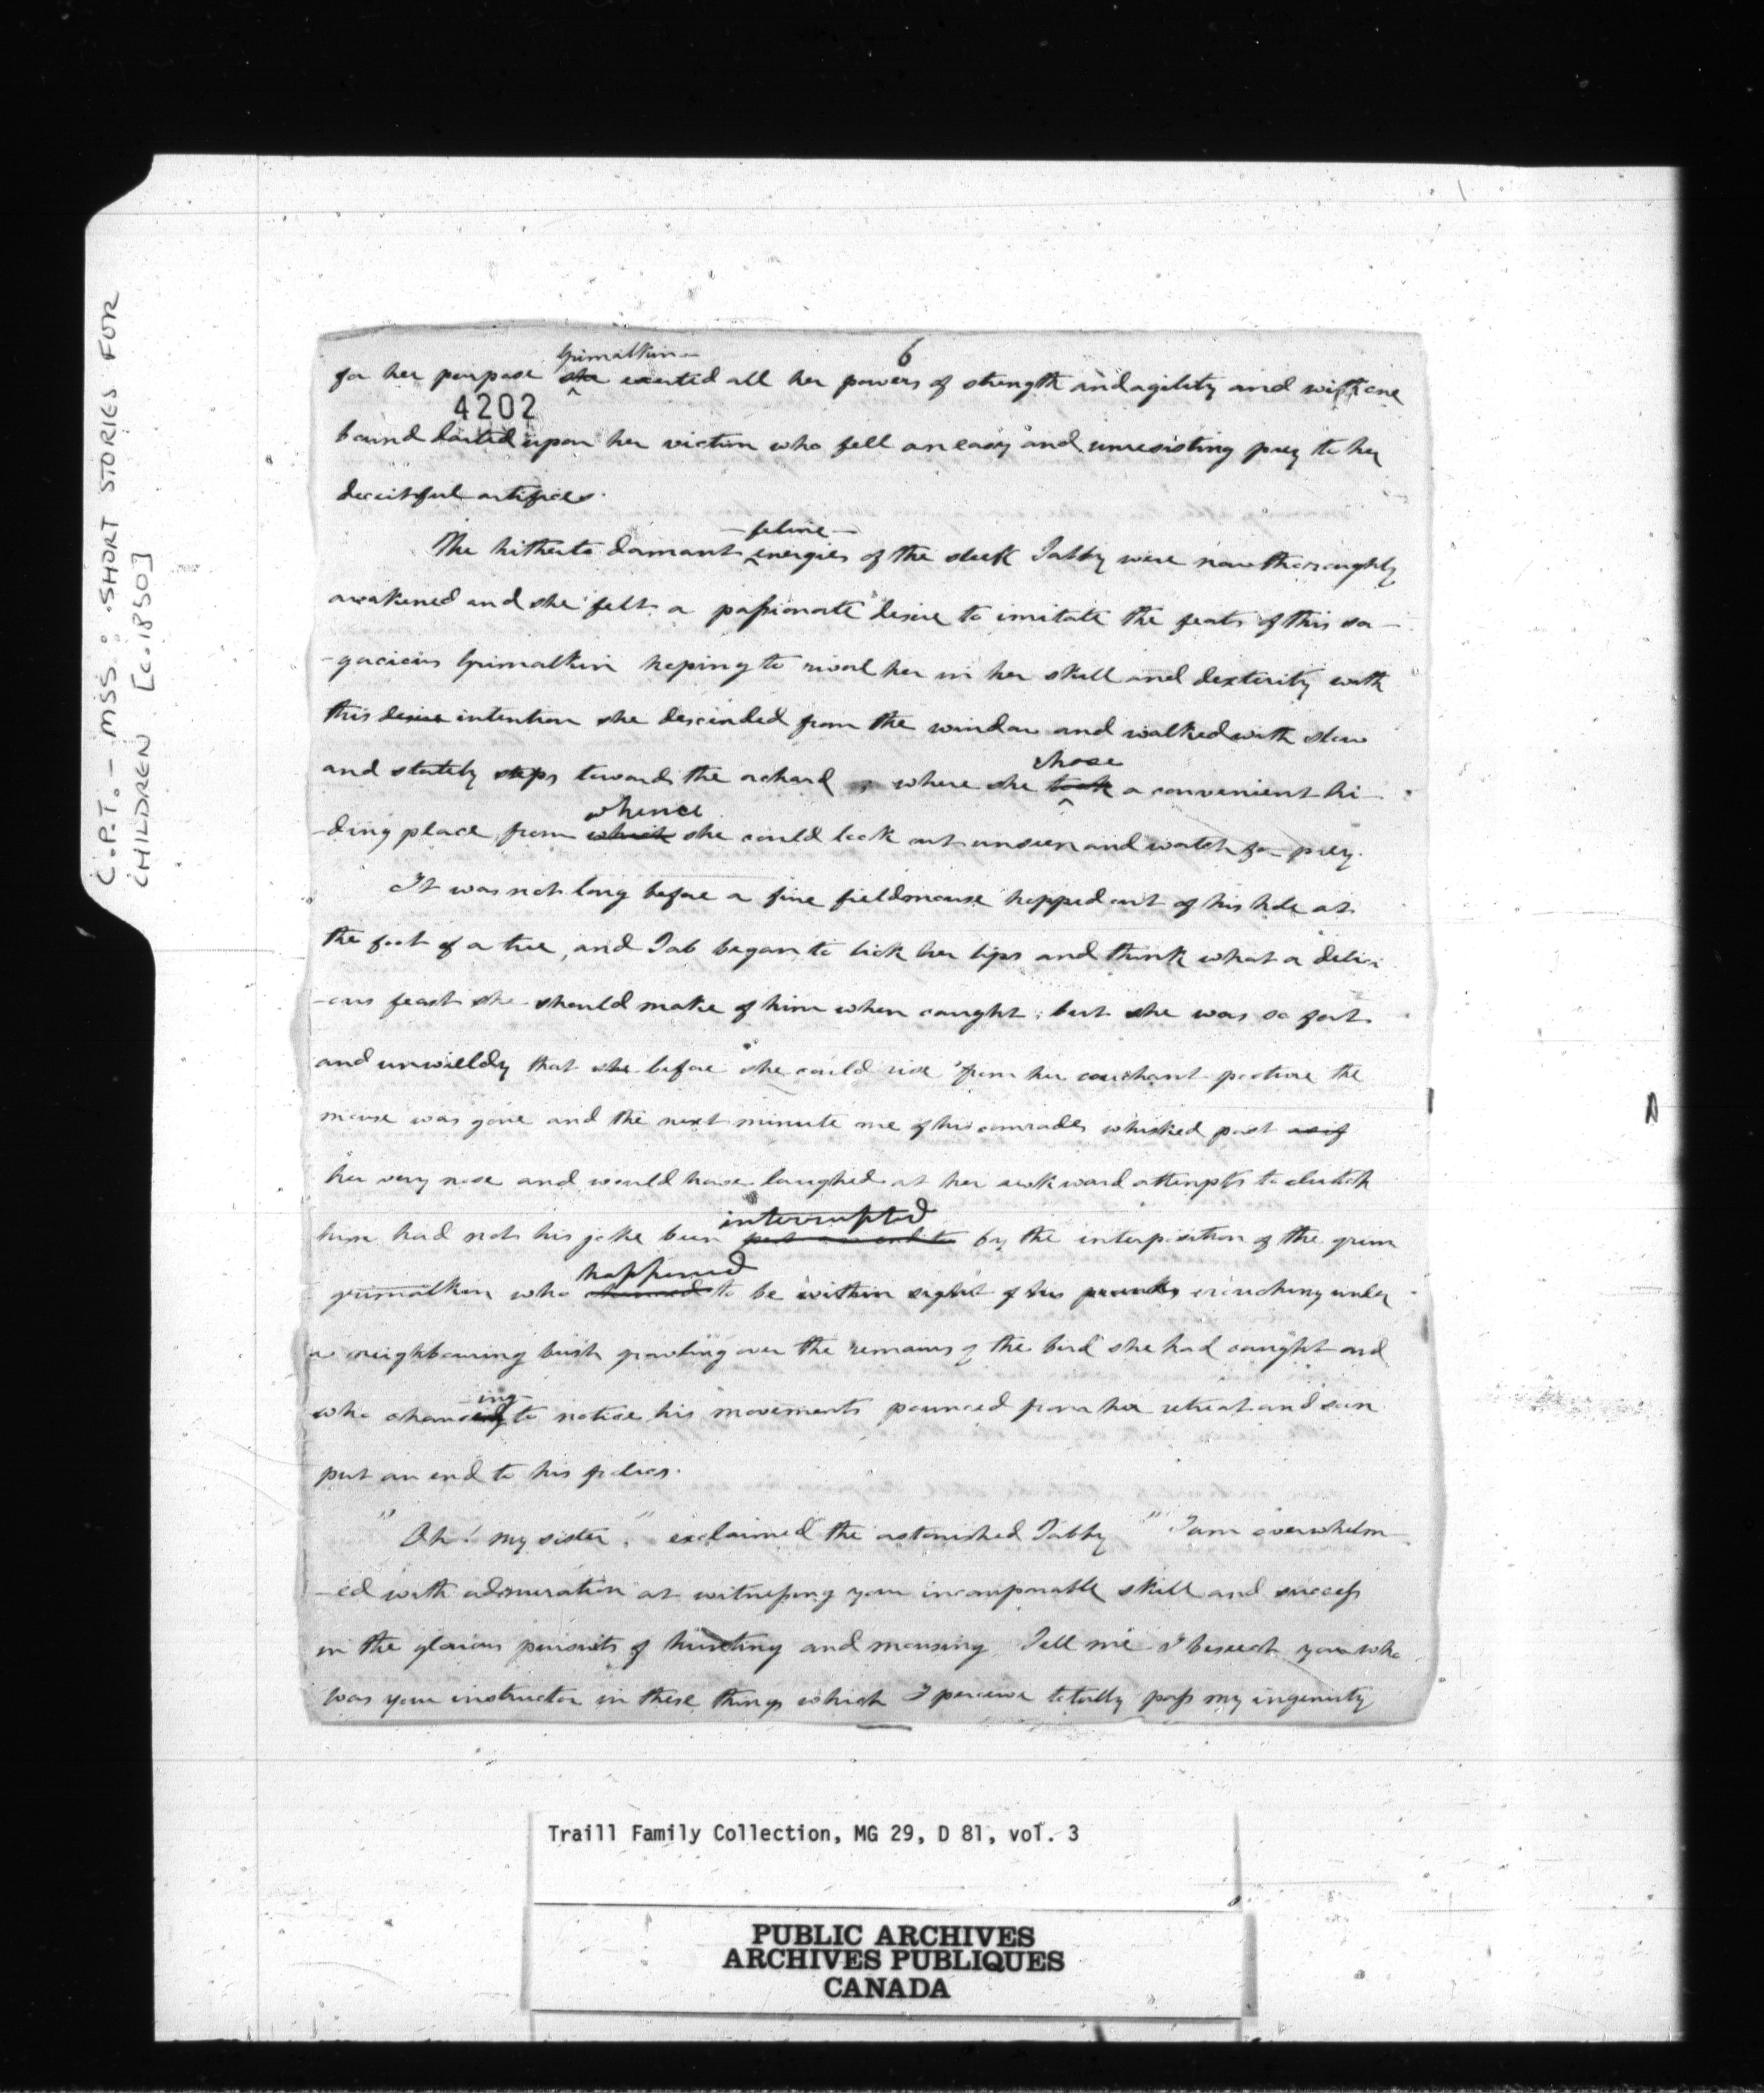 C.P.T. - MSS: SHORT STORIES FOR
CHILDREN [c.1850]
6
Grimalkin
for her purpose she exerted all her powers of strength and agility and with one
4202
bound darted upon her victim who fell an easy and unresisting prey to her
deceitful artifices.
feline
The hitherto dormant energies of the sleek Tabby were now thoroughly
awakened and she felt a passionate desire to imitate the feats of this sa-
-gacious Grimalkin hoping to rival her in her skill and dexterity with
this desire intention she descended from the window and walked with slow
and stately steps towards the orchard, where she took a convenient hi-
chose
whence
-ding place from which she could look out unseen and watch for prey.
It was not long before a fine fieldmouse hopped out of his hole at
the foot of a tree, and Tab began to lick her lips and think what a delici
-ous feast she should make of him when caught; but she was so fat
and unwieldy that she before she could rise from her couchant posture the
mouse was gone and the next minute one of his comrades whisked past as if
her very nose and would have laughed at her awkward attempts to clutch
interrupted
him had not his joke been put an end to by the interposition of the grim
happened
grimalkin who chanced to be within sight of his pranks crouching under
a neighbouring bush growling over the remains of the bird she had caught and
ing
who chanced to notice his movements pounced from her retreat and soon
put an end to his frolics.
"Oh! my sister," exclaimed the astonished Tabby "I am overwhelm-
-ed with admiration at witnessing your incomparable skill and success
in the glorious pursuits of hunting and mousing. Tell me I beseech you who
was your instructor in these things which I perceive totally pass my ingenuity
D
Traill Family Collection, MG 29, D 81, vol. 3
PUBLIC ARCHIVES
ARCHIVES PUBLIQUES
CANADA